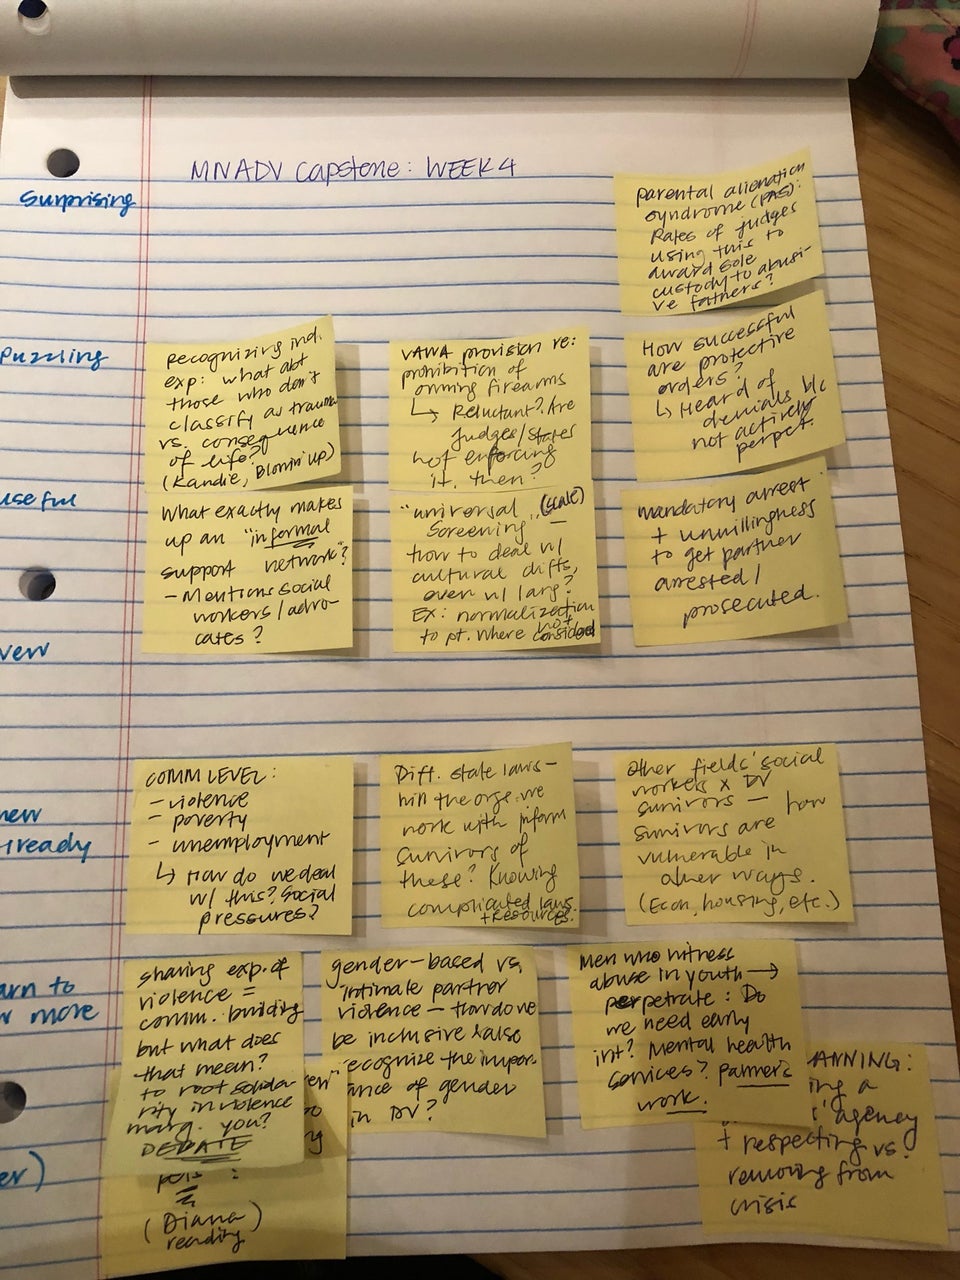 MNADV Capstone: WEEK 4
Surprising
parental alienation
syndrome (PAS):
Rates of judges
using this to
award sole
custody to abusi-
ve fathers?
Puzzling
recognizing ind.
exp: what abt
those who don't
classify as trauma
vs. consequence
of life?
(Kandie, Blowin' Up)
VAWA provision re:
prohibition of
owning firearms
↳ Reluctant? Are
judges/states
not enforcing
it, then?
How successful
are protective
orders?
↳ Heard of
denials b/c
not actively
perpet.
useful
What exactly makes
up an "informal
support network"?
- Mentions social
workers/advo-
cates?
"universal (scale)
Screening" -
how to deal w/
cultural diffs,
even w/ lang?
EX: normalization
to pt. where not
considered
mandatory arrest
+ unwillingness
to get partner
arrested/
prosecuted.
new
COMM LEVEL:
- violence
- poverty
- unemployment
↳ How do we deal
w/ this? Social
pressures?
Diff. state laws -
will the orgs. we
work with inform
survivors of
these? Knowing
complicated laws
+ resources.
Other fields' social
workers x DV
survivors - how
survivors are
vulnerable in
other ways.
(Econ, housing, etc.)
new
lready
arn to
w more
sharing exp. of
violence =
comm. building
but what does
that mean?
to root solida-
rity in violence
marg. you?
DEBATE
(Diana)
reading
gender-based vs.
intimate partner
violence - How do we
be inclusive & also
recognize the impor-
ance of gender
in DV?
Men who witness
abuse in youth →
perpetrate: Do
we need early
int? Mental health
services? palmer's
work.
ANNING:
ing a
agency
+ respecting vs.
removing from
crisis
er)